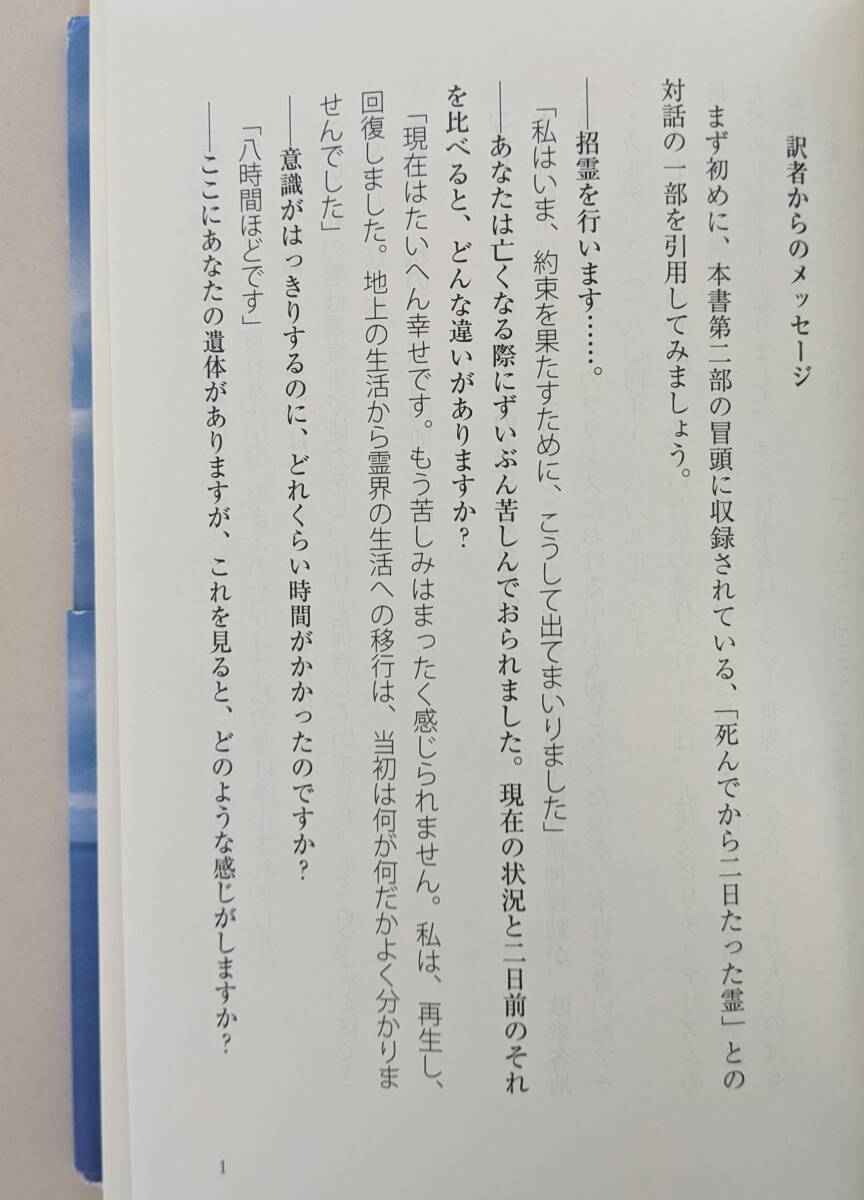 訳者からのメッセージ
まず初めに、本書第二部の冒頭に収録されている、「死んでから二日たった霊」との
対話の一部を引用してみましょう。
――招霊を行います……。
「私はいま、約束を果たすために、こうして出てまいりました」
――あなたは亡くなる際にずいぶん苦しんでおられました。現在の状況と二日前のそれ
を比べると、どんな違いがありますか？
「現在はたいへん幸せです。もう苦しみはまったく感じられません。私は、再生し、
回復しました。地上の生活から霊界の生活への移行は、当初は何が何だかよく分かりま
せんでした」
――意識がはっきりするのに、どれくらい時間がかかったのですか？
「八時間ほどです」
――ここにあなたの遺体がありますが、これを見ると、どのような感じがしますか？
1